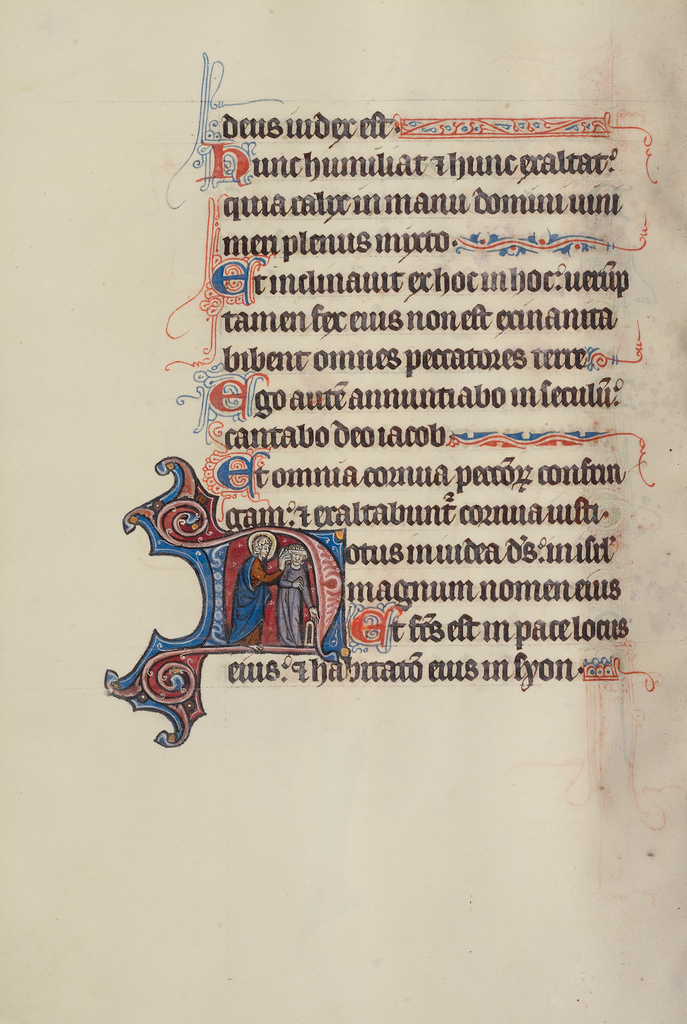 deus iudex est.
Hunc humiliat ⁊ hunc exaltat:
quia calix in manu domini uini
meri plenus mixto.
Et inclinauit ex hoc in hoc: uerūp
tamen fex eius non est exinanita
bibent omnes peccatores terre
Ego autē annuntiabo in seculū:
cantabo deo iacob.
Et omnia cornua peccōꝝ confrin
gam: ⁊ exaltabunt᷑ cornua iusti.
Notus in iudea d̄s: in isrl'
magnum nomen eius
Et fc̄s est in pace locus
eius: ⁊ habitatō eius in syon.